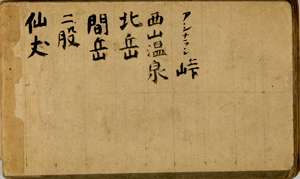 アシナマシ峠
西山温泉
北岳
間岳
二股
仙丈